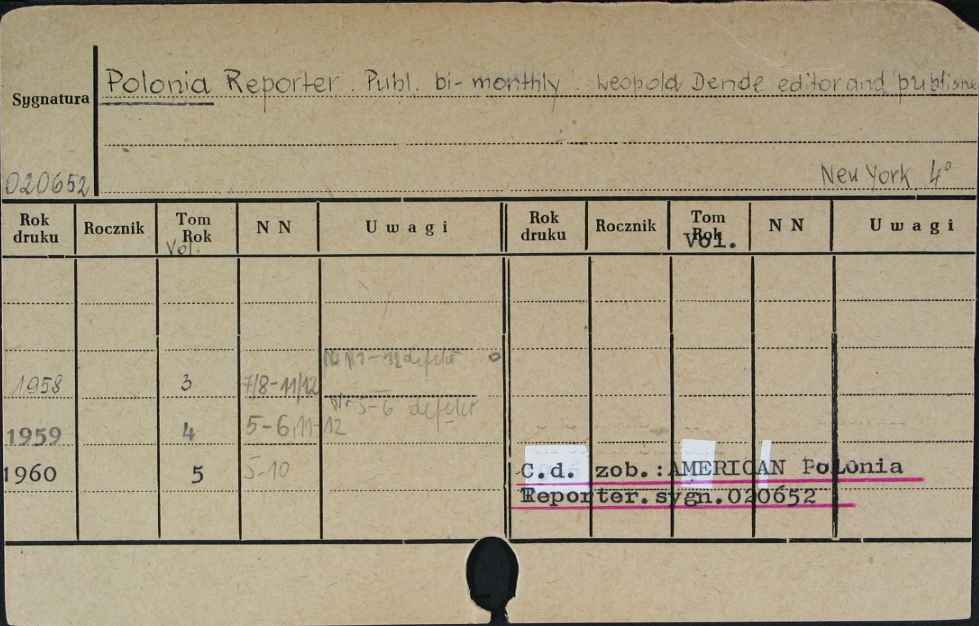 Polonia Reporter. Publ. bi-monthly Leopold Dende editor and publishe
Sygnatura
020652
New York 4°
Rok druku Rocznik Tom Rok Vol. NN Uwagi Rok druku Rocznik Tom Rok Vol. NN Uwagi
NN 7-12 defekt
1958 3 7/8-11/12
Nr 5-6 defekt
1959 4 5-6, 11-12
1960 5 5-10
C.d. zob.: AMERICAN Polonia
Reporter. sygn. 020652